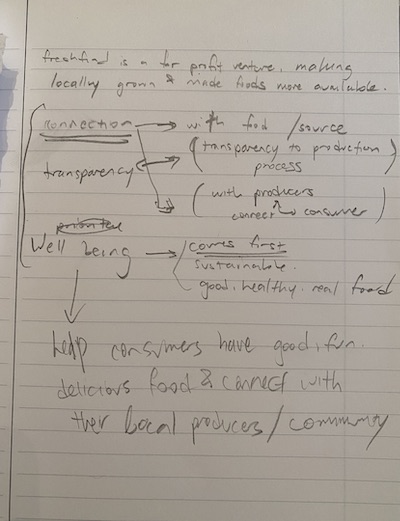 freshfind is a for profit venture, making
locally grown & made foods more available.
connection → with food / source
(transparency to production
process)
transparency
(with producers
connect ↔ consumer)
Well being → comes first
sustainable.
good, healthy, real food
help consumers have good, fun,
delicious food & connect with
ther local producers / community